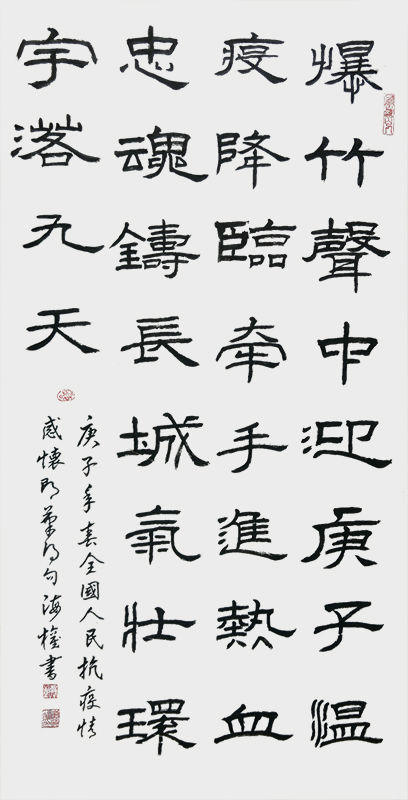 爆竹聲中迎庚子温
疫降臨牽手進熱血
忠魂鑄長城氣壯環
宇落九天
庚子年春全國人民抗疫情
感懷即得句海書